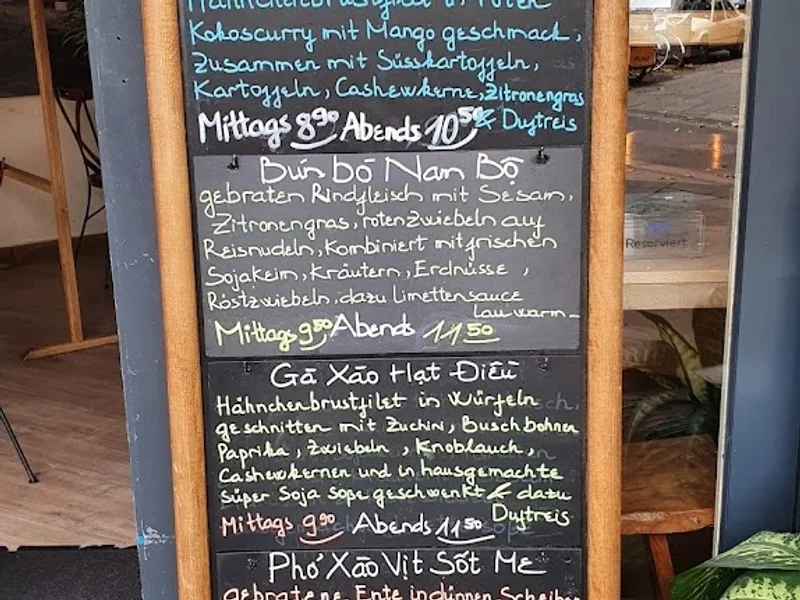 Hähnchenbrustfilet in roten
Kokoscurry mit Mango geschmack,
Zusammen mit Süsskartoffeln,
Kartoffeln, Cashewkerne, Zitronengras
& Duftreis
Mittags 8,90 Abends 10,50
Bún bó Nam Bộ
gebraten Rindfleisch mit Sesam,
Zitronengras, roten Zwiebeln auf
Reisnudeln, Kombiniert mit frischen
Sojakeim, Kräutern, Erdnüsse,
Röstzwiebeln, dazu Limettensauce
lauwarm
Mittags 9,50 Abends 11,50
Gà Xào Hạt Điều
Hähnchenbrustfilet in Würfeln
geschnitten mit Zuchini, Buschbohnen
Paprika, Zwiebeln, Knoblauch,
Cashewkernen und in hausgemachte
Süper Soja Soße geschwenkt & dazu
Duftreis
Mittags 9,90 Abends 11,50
Phở Xào Vịt Sốt Me
gebratene Ente in dünnen Scheiben
Reserviert